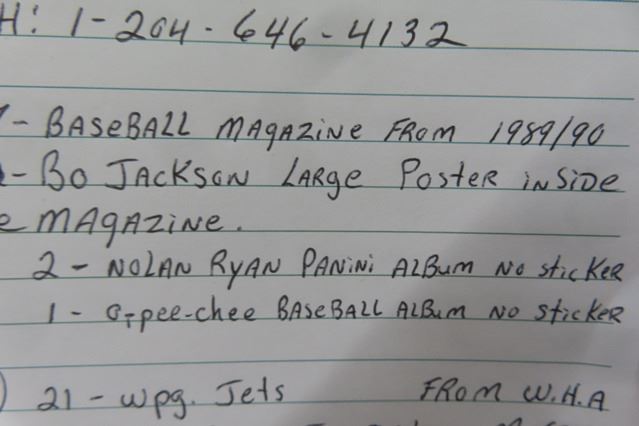 H: 1-204-646-4132
- BASEBALL MAGAZINE FROM 1989/90
- BO JACKSON LARGE POSTER INSIDE
e MAGAZINE.
2 - NOLAN RYAN PANINI ALBUM NO STICKER
1 - O-pee-chee BASEBALL ALBUM NO STICKER
) 21 - wpg. Jets FROM W.H.A